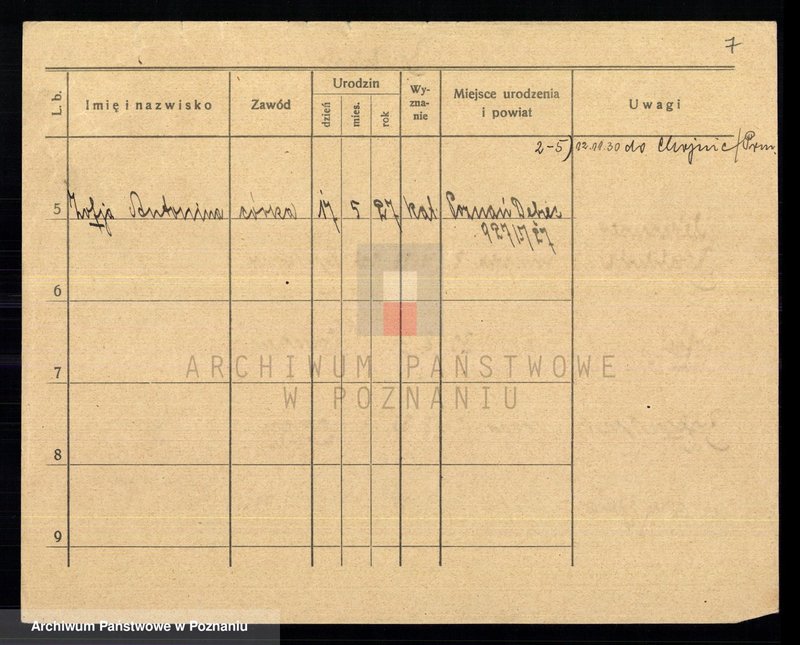 7
L. b.
Imię i nazwisko
Zawód
Urodzin
dzień
mies.
rok
Wy-
zna-
nie
Miejsce urodzenia
i powiat
Uwagi
2-5) 02.11.30 do Chojnic/Pom.
5 Zofja Antonina córka 17 5 27 kat Poznań Dębiec
927/V/27
6
7
8
9
ARCHIWUM PAŃSTWOWE
W POZNANIU
Archiwum Państwowe w Poznaniu